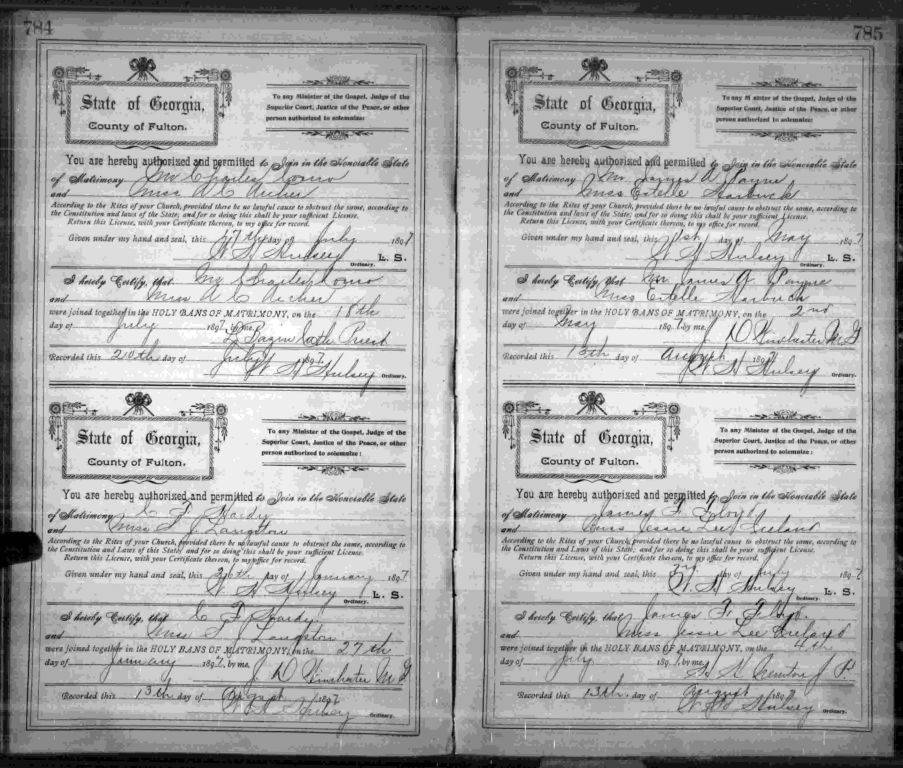 784
State of Georgia,
County of Fulton.
To any Minister of the Gospel, Judge of the
Superior Court, Justice of the Peace, or other
person authorized to solemnize:
You are hereby authorised and permitted to Join in the Honorable State
of Matrimony Mr Charles
and Miss A C Archer
According to the Rites of your Church, provided there be no lawful cause to obstruct the same, according to
the Constitution and laws of the State; and for so doing this shall be your sufficient License.
Return this License, with your Certificate thereon, to my office for record.
Given under my hand and seal, this 17th day of July 1897
W H Hulsey L. S.
Ordinary.
I hereby Certify, that Mr Charles
and Miss A C Archer
were joined together in the HOLY BANS OF MATRIMONY, on the 18th
day of July 1897 by me,
Cath Priest
Recorded this 20th day of July 1897
W H Hulsey
Ordinary.
State of Georgia,
County of Fulton.
To any Minister of the Gospel, Judge of the
Superior Court, Justice of the Peace, or other
person authorized to solemnize:
You are hereby authorised and permitted to Join in the Honorable State
of Matrimony C F Hardy
and Miss Langston
According to the Rites of your Church, provided there be no lawful cause to obstruct the same, according to
the Constitution and Laws of this State; and for so doing this shall be your sufficient License.
Return this License, with your Certificate thereon, to my office for record.
Given under my hand and seal, this 26th day of January 1897
W H Hulsey L. S.
Ordinary.
I hereby Certify, that C F Hardy
and Miss Langston
were joined together in the HOLY BANS OF MATRIMONY, on the 27th
day of January 1897, by me, J D Winchester M G
Recorded this 13th day of August 1897
W H Hulsey Ordinary.
785
State of Georgia,
County of Fulton.
To any Minister of the Gospel, Judge of the
Superior Court, Justice of the Peace, or other
person authorized to solemnize:
You are hereby authorised and permitted to Join in the Honorable State
of Matrimony Mr. James A Payne
and Miss Estelle Harbuck
According to the Rites of your Church, provided there be no lawful cause to obstruct the same, according to
the Constitution and laws of the State; and for so doing this shall be your sufficient License.
Return this License, with your Certificate thereon, to my office for record.
Given under my hand and seal, this 1st day of May 1897
W H Hulsey L. S.
Ordinary.
I hereby Certify, that Mr. James A Payne
and Miss Estelle Harbuck
were joined together in the HOLY BANS OF MATRIMONY, on the 2nd
day of May 1897 by me, J D Winchester M G
Recorded this 13th day of August 1897
W H Hulsey
Ordinary.
State of Georgia,
County of Fulton.
To any Minister of the Gospel, Judge of the
Superior Court, Justice of the Peace, or other
person authorized to solemnize:
You are hereby authorised and permitted to Join in the Honorable State
of Matrimony James F Floyd
and Miss Jessie Lee Ireland
According to the Rites of your Church, provided there be no lawful cause to obstruct the same, according to
the Constitution and Laws of this State; and for so doing this shall be your sufficient License.
Return this License, with your Certificate thereon, to my office for record.
Given under my hand and seal, this day of July 1897
W H Hulsey L. S.
Ordinary.
I hereby Certify, that James F Floyd.
and Miss Jessie Lee Ireland
were joined together in the HOLY BANS OF MATRIMONY, on the 4th
day of July 1897, by me,
J P.
Recorded this 13th. day of August 1897
W H Hulsey
Ordinary.